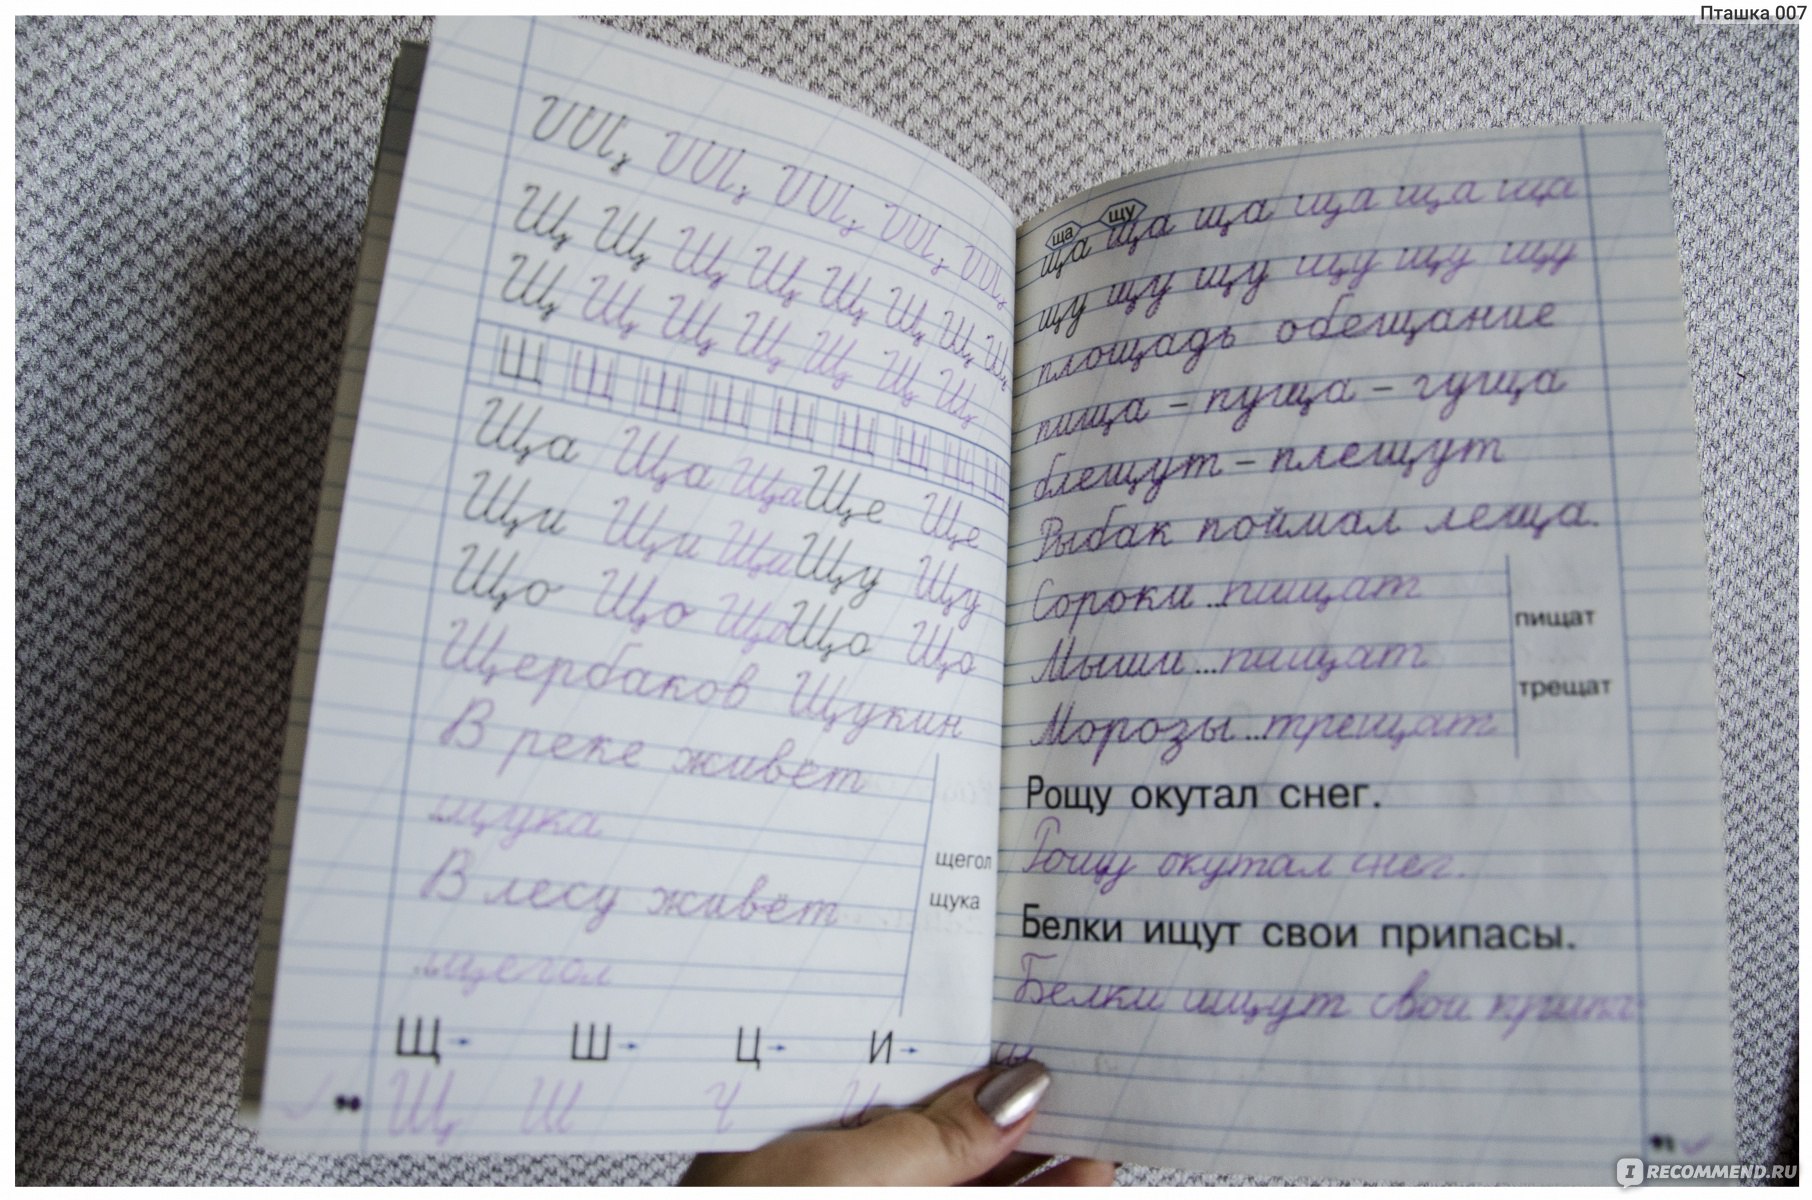 Пташка 007
Щ Щ Щ Щ Щ Щ Щ Щ
Щ Щ Щ Щ Щ Щ Щ
Щ Щ Щ Щ Щ Щ Щ Щ Щ
Ща Ща Ща Ще Ще
Щи Щи Щи Щу Щу
Що Що Що Що Що
Щербаков Щукин
В реке живёт
...щука
В лесу живёт
...щегол
щегол
щука
Щ Ш Ц И
Щ Ш Ч И
90
ща щу
ща ща ща ща ща ща
щу щу щу щу щу щу
площадь обещание
пища – пуща – гуща
блещут – плещут
Рыбак поймал леща.
Сороки ...пищат
Мыши ...пищат
Морозы ...трещат
пищат
трещат
Рощу окутал снег.
Рощу окутал снег.
Белки ищут свои припасы.
Белки ищут свои
91
IRECOMMEND.RU